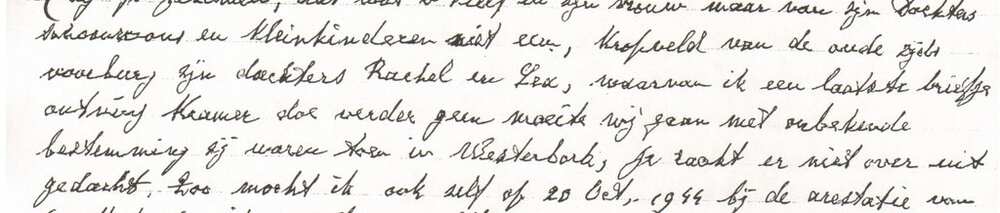 zijn vrouw maar van zijn dochters
schoonzoons en kleinkinderen niet een, Kropveld van de oude zijds
voorburg, zijn dochters Rachel en Lea, waarvan ik een laatste briefje
ontving Kramer doe verder geen moeite wij gaan met onbekende
bestemming zij waren toen in Westerbork, Je raakt er niet over uit
gedacht. Zoo mocht ik ook zelf op 20 Oct, 1944 bij de arestatie van